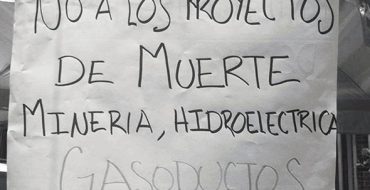 NO A LOS PROYECTOS
DE MUERTE
MINERIA, HIDROELECTRICA
GASODUCTOS